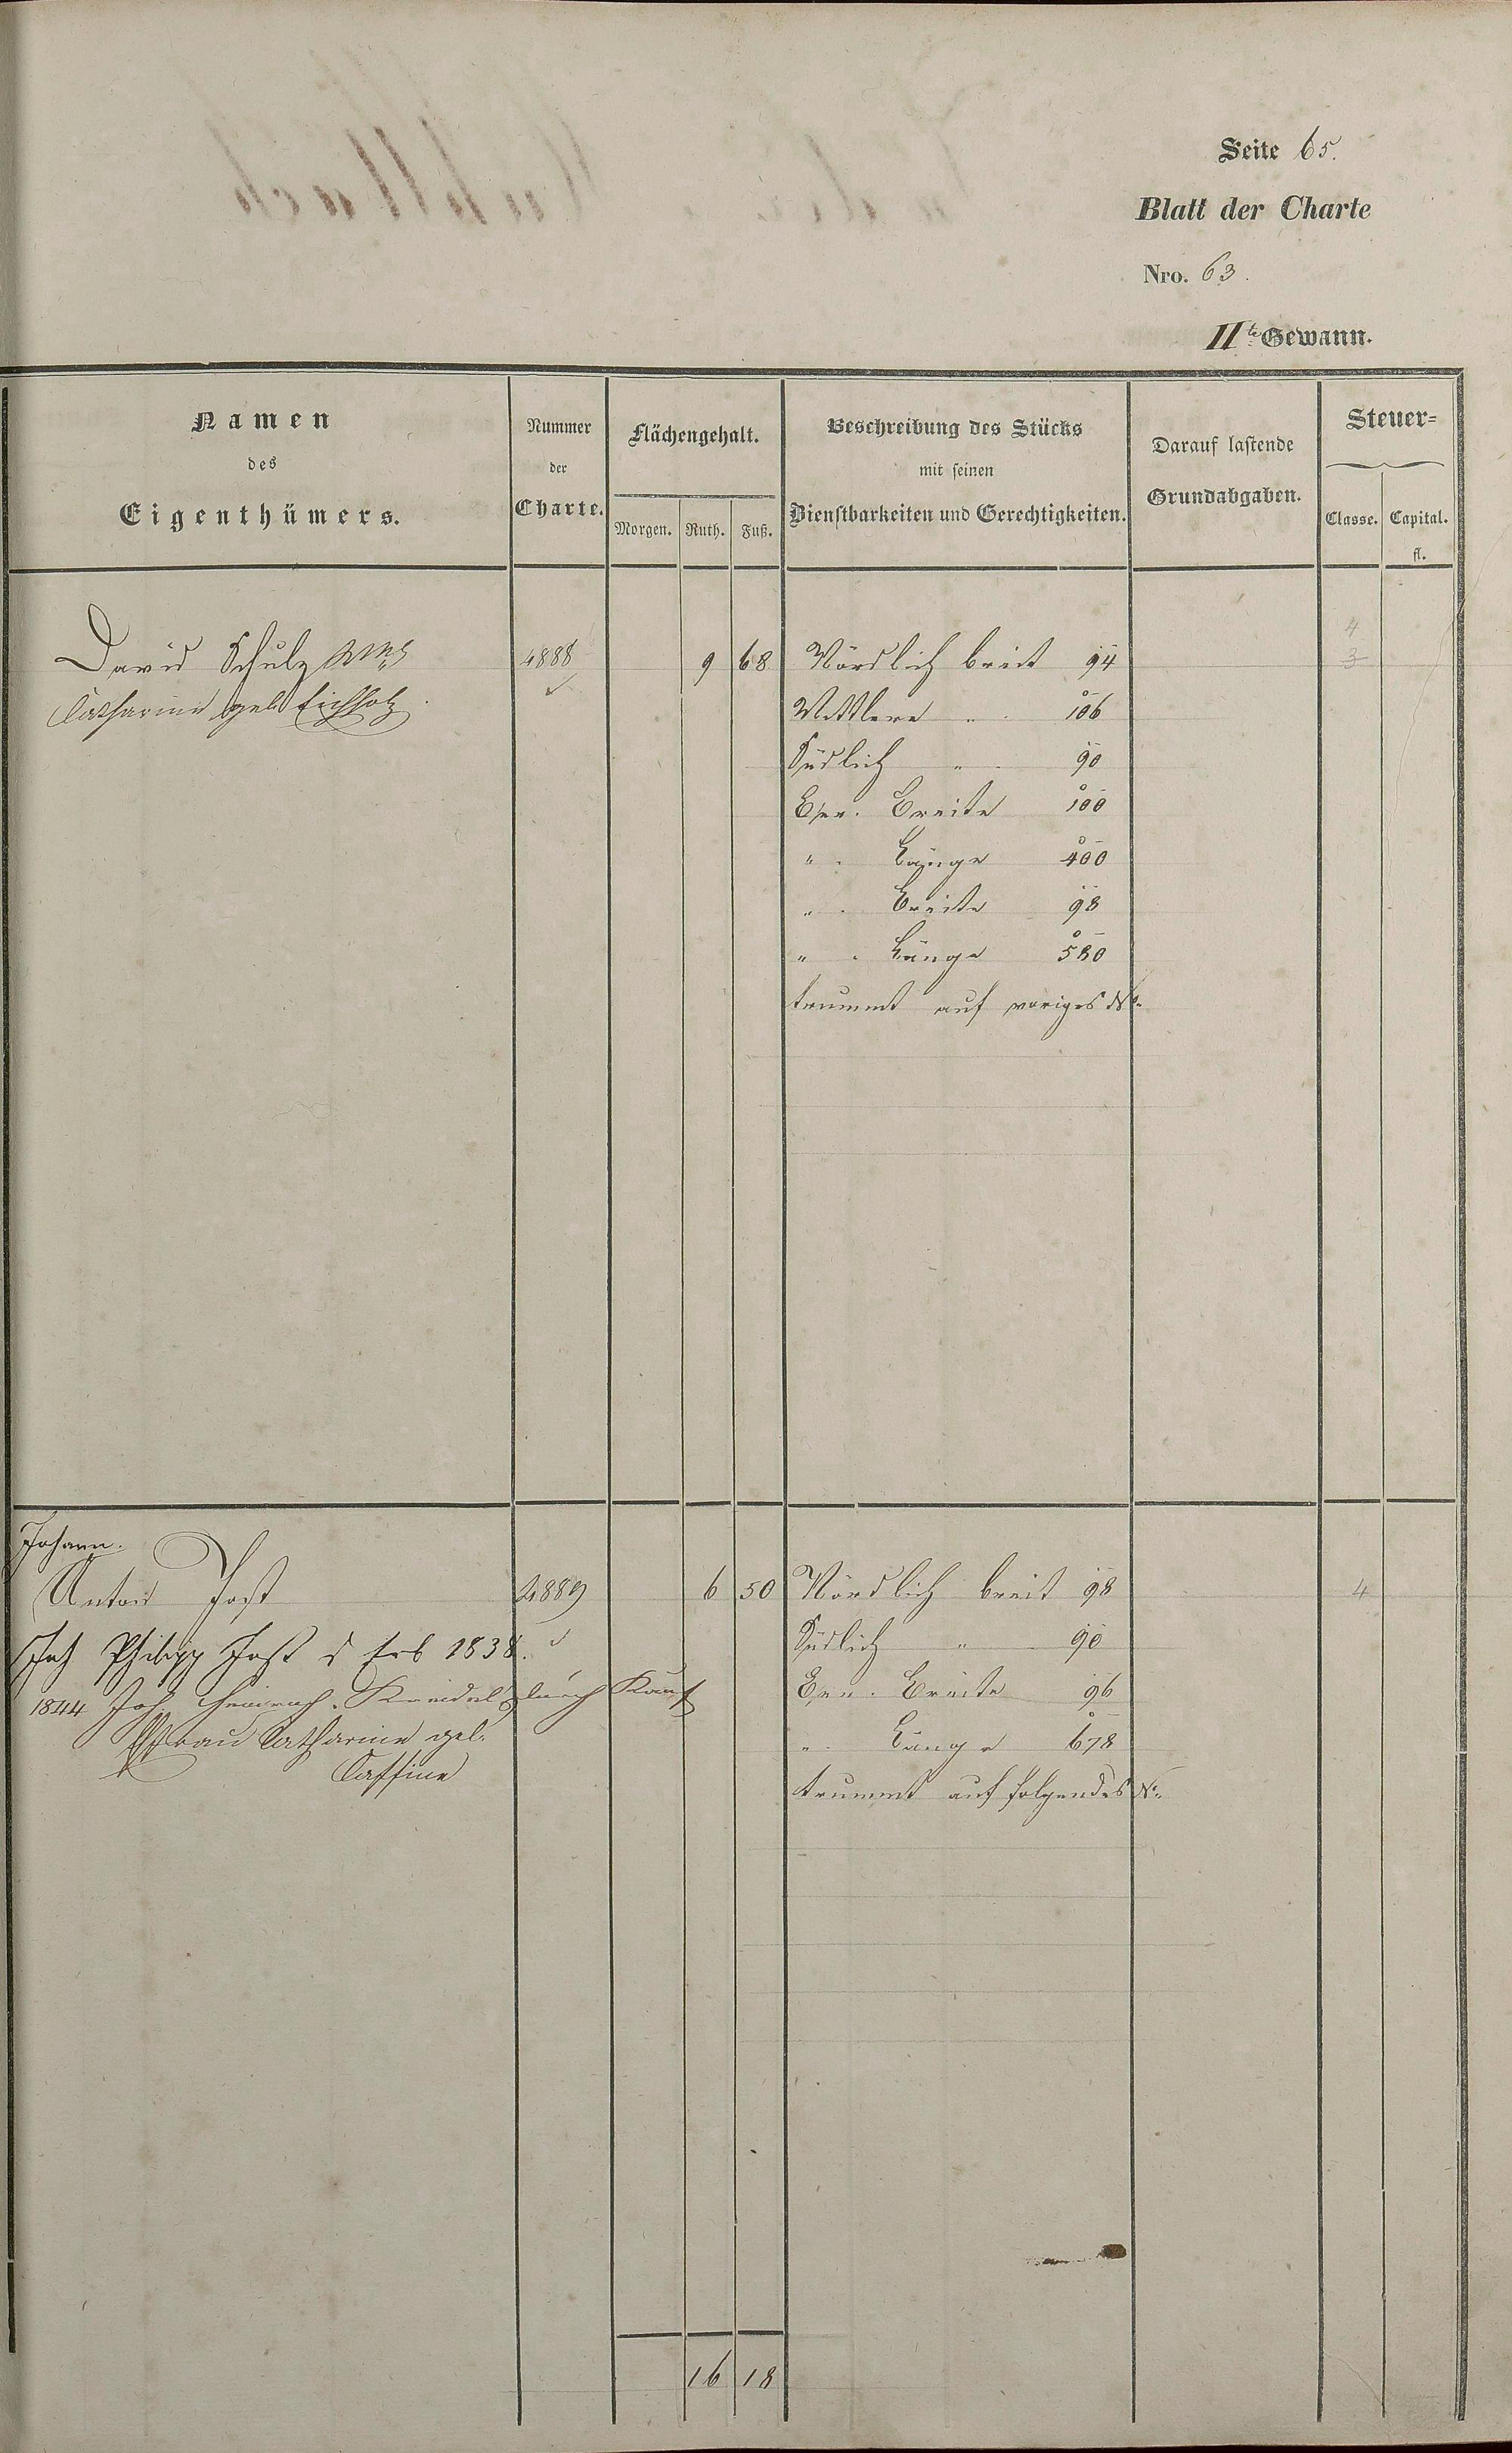 Seite 65.
Blatt der Charte
Nro. 63.
IIte Gewann.
Namen
des
Eigenthümers.
Nummer
der
Charte.
Flächengehalt.
Morgen. Ruth. Fuß.
Beschreibung des Stücks
mit seinen
Dienstbarkeiten und Gerechtigkeiten.
Darauf lastende
Grundabgaben.
Steuer-
Classe. Capital.
fl.
David Schulz 4888 9 68 Nördlich breit 94 4
3
Catharine geb. Eichholz
Mittlere " 106
Südlich " 90
Ger. Breite 100
" Länge 400
" Breite 98
" Länge 580
krummt auf voriges No.
Johann.
Anton Jost 4889 6 50 Nördlich breit 98 4
Joh Philipp Jost d Erb 1838.
Südlich " 90
1844 Joh. Heinrich Kreidel durch Kauf
Ger. Breite 96
Ehefrau Catharine geb.
" Länge 678
krummt auf folgendes No.
16 18